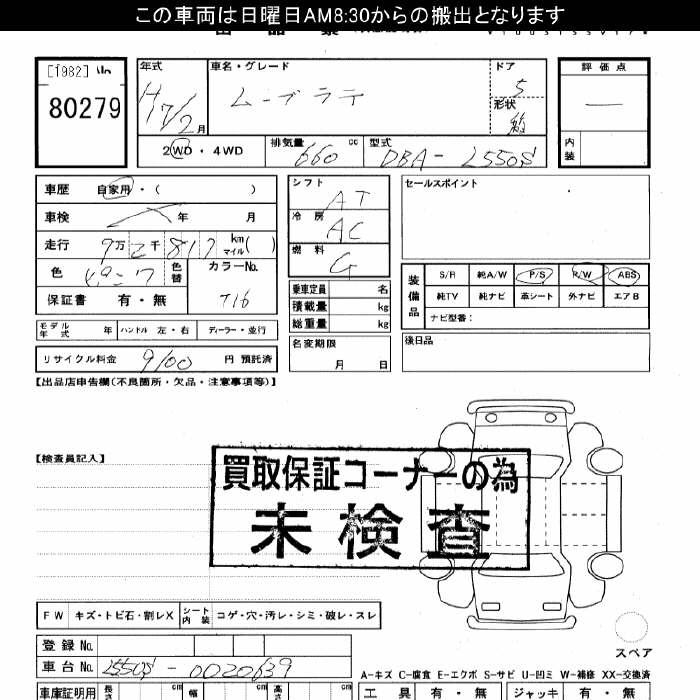 この車両は日曜日AM8:30からの搬出となります
[1982]
80279
年式 H17/2月
車名・グレード ムーブラテ
ドア 5
形状 箱
評価点 —
内装
2WD・4WD
排気量 660 cc
型式 DBA-L550S
車歴 自家用・( )
車検 年 月
走行 9万2千817 km マイル( )
色 ピンク 色替
カラーNo. T16
保証書 有・無
シフト AT
冷房 AC
燃料 G
乗車定員 名
積載量 kg
総重量 kg
セールスポイント
装備品
S/R 純A/W P/S P/W ABS
純TV 純ナビ 革シート 外ナビ エアB
ナビ型番:
モデル年式 年 ハンドル 左・右 ディーラー・並行
名変期限 月 日
後日品
リサイクル料金 9100 円 預託済
【出品店申告欄(不良箇所・欠品・注意事項等)】
【検査員記入】
買取保証コーナーの為
未検査
FW キズ・トビ石・割レX シート内装 コゲ・穴・汚レ・シミ・破レ・スレ
スペア
登録No.
車台No. L550S-0020639
A-キズ C-腐食 E-エクボ S-サビ U-凹ミ W-補修 XX-交換済
車庫証明用 長さ cm 幅 cm 高さ cm
工具 有・無 ジャッキ 有・無